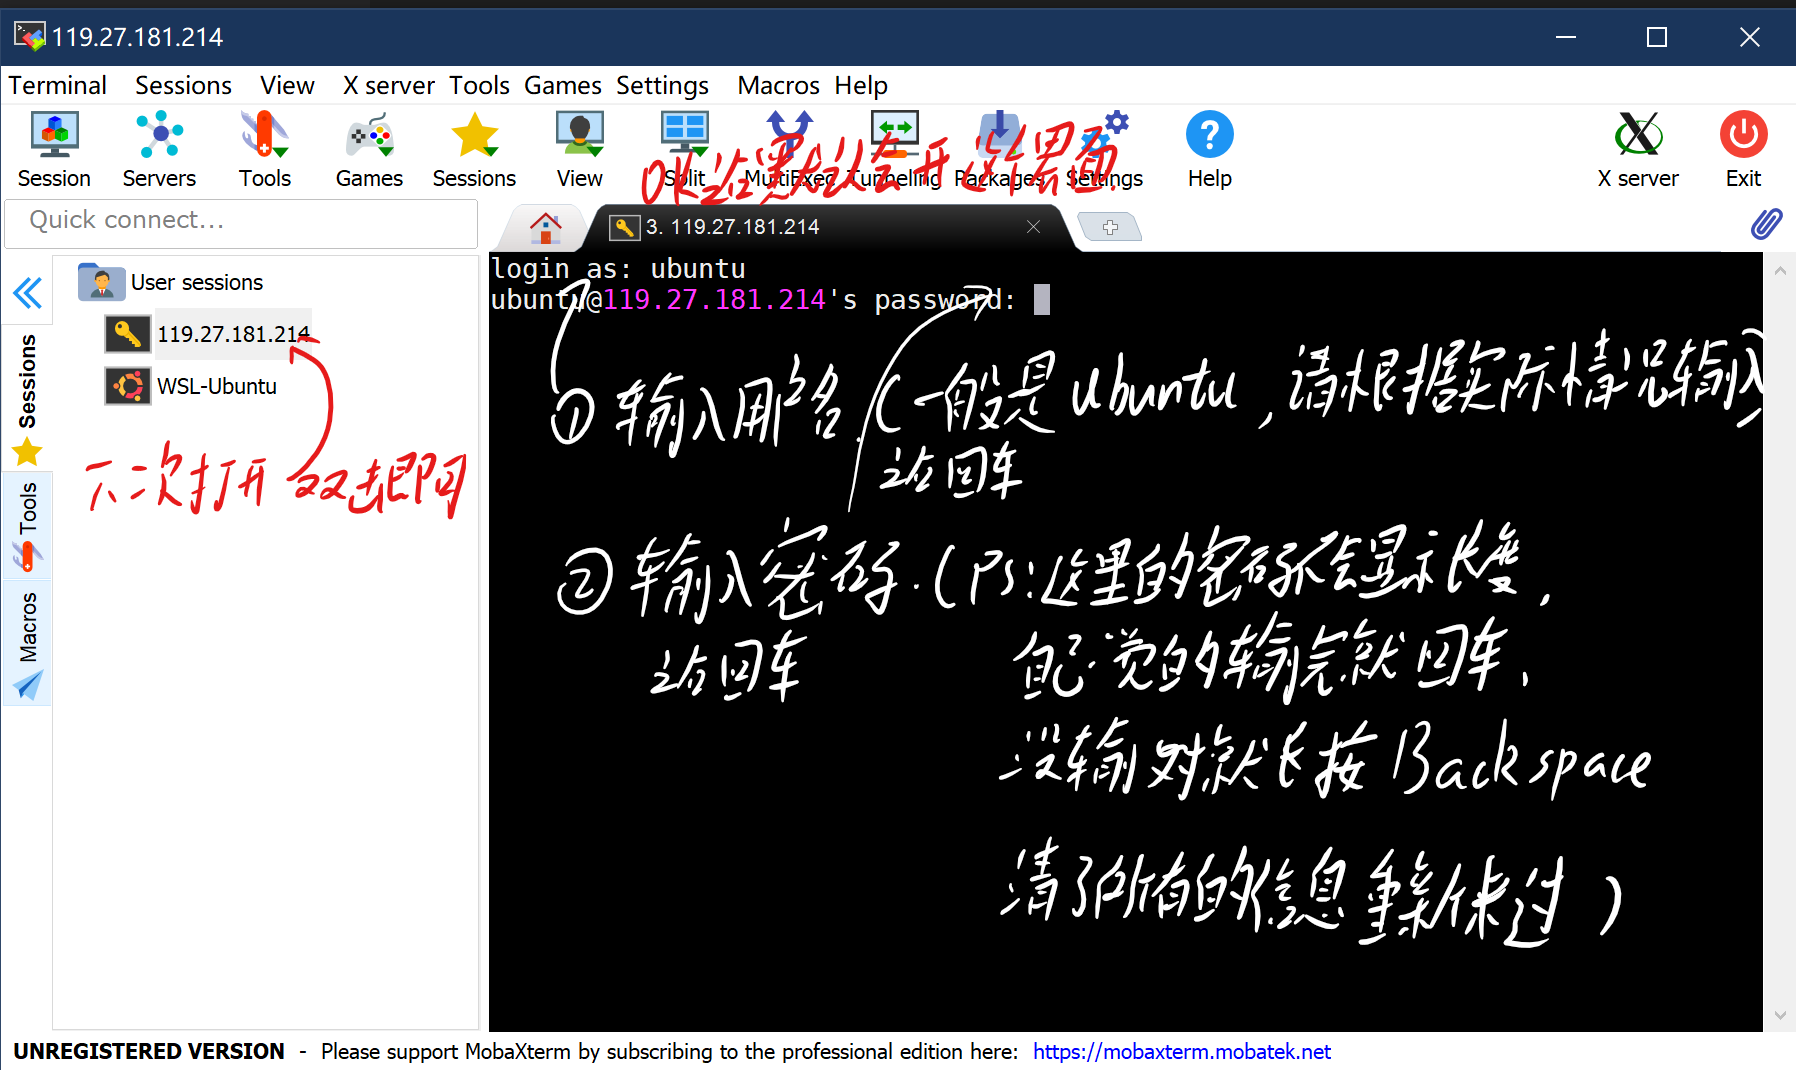 119.27.181.214
Terminal Sessions View X server Tools Games Settings Macros Help
Session Servers Tools Games Sessions View Split MultiExec Tunneling Packages Settings Help X server Exit
OK之后默认会开这个界面.
Quick connect...
3. 119.27.181.214
User sessions
119.27.181.214
WSL-Ubuntu
Sessions
Tools
Macros
下次打开 双击即可
login as: ubuntu
ubuntu@119.27.181.214's password:
① 输入用户名.(一般是ubuntu,请根据实际情况输入)
之后回车
② 输入密码.(PS:这里的密码不会显示长度,
自己觉的输完就回车,
之后回车
没输对就长按Backspace
清了所有的信息重新来过)
UNREGISTERED VERSION - Please support MobaXterm by subscribing to the professional edition here: https://mobaxterm.mobatek.net